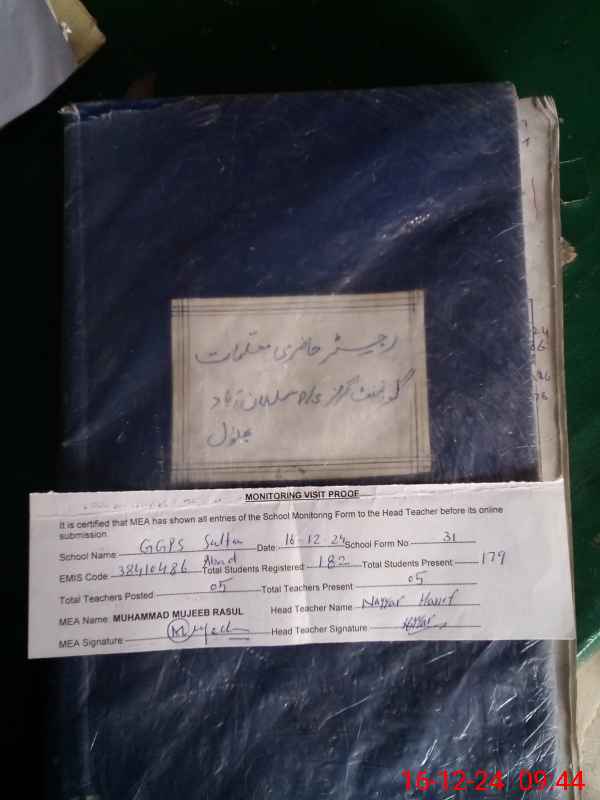 رجسٹر حاضری معلمات
گورنمنٹ گرلز پرائمری سلطان آباد
بھلوال
MONITORING VISIT PROOF
It is certified that MEA has shown all entries of the School Monitoring Form to the Head Teacher before its online
submission.
School Name: GGPS Sultan Abad Date: 16-12-24 School Form No: 31
EMIS Code: 38410486 Total Students Registered: 182 Total Students Present: 179
Total Teachers Posted: 05 Total Teachers Present: 05
MEA Name: MUHAMMAD MUJEEB RASUL Head Teacher Name: Nayyar Hanif
MEA Signature: Mujeeb Head Teacher Signature: Nayyar
16-12-24 09:44